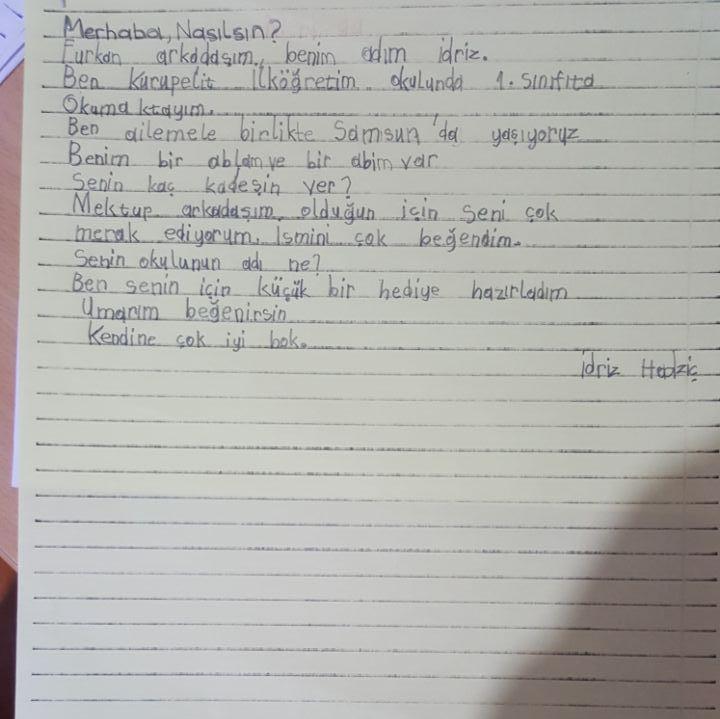 Merhaba, Nasılsın?
Furkan arkadaşım, benim adım idriz.
Ben Kurupelit İlköğretim okulunda 1. sınıfta
Okumaktayım.
Ben ailemele birlikte Samsun'da yaşıyoruz
Benim bir ablam ve bir abim var
Senin kaç kadeşin ver?
Mektup arkadaşım olduğun için seni çok
merak ediyorum. İsmini çok beğendim.
Senin okulunun adı ne?
Ben senin için küçük bir hediye hazırladım
Umarım beğenirsin
Kendine çok iyi bak.
idriz Hadziç